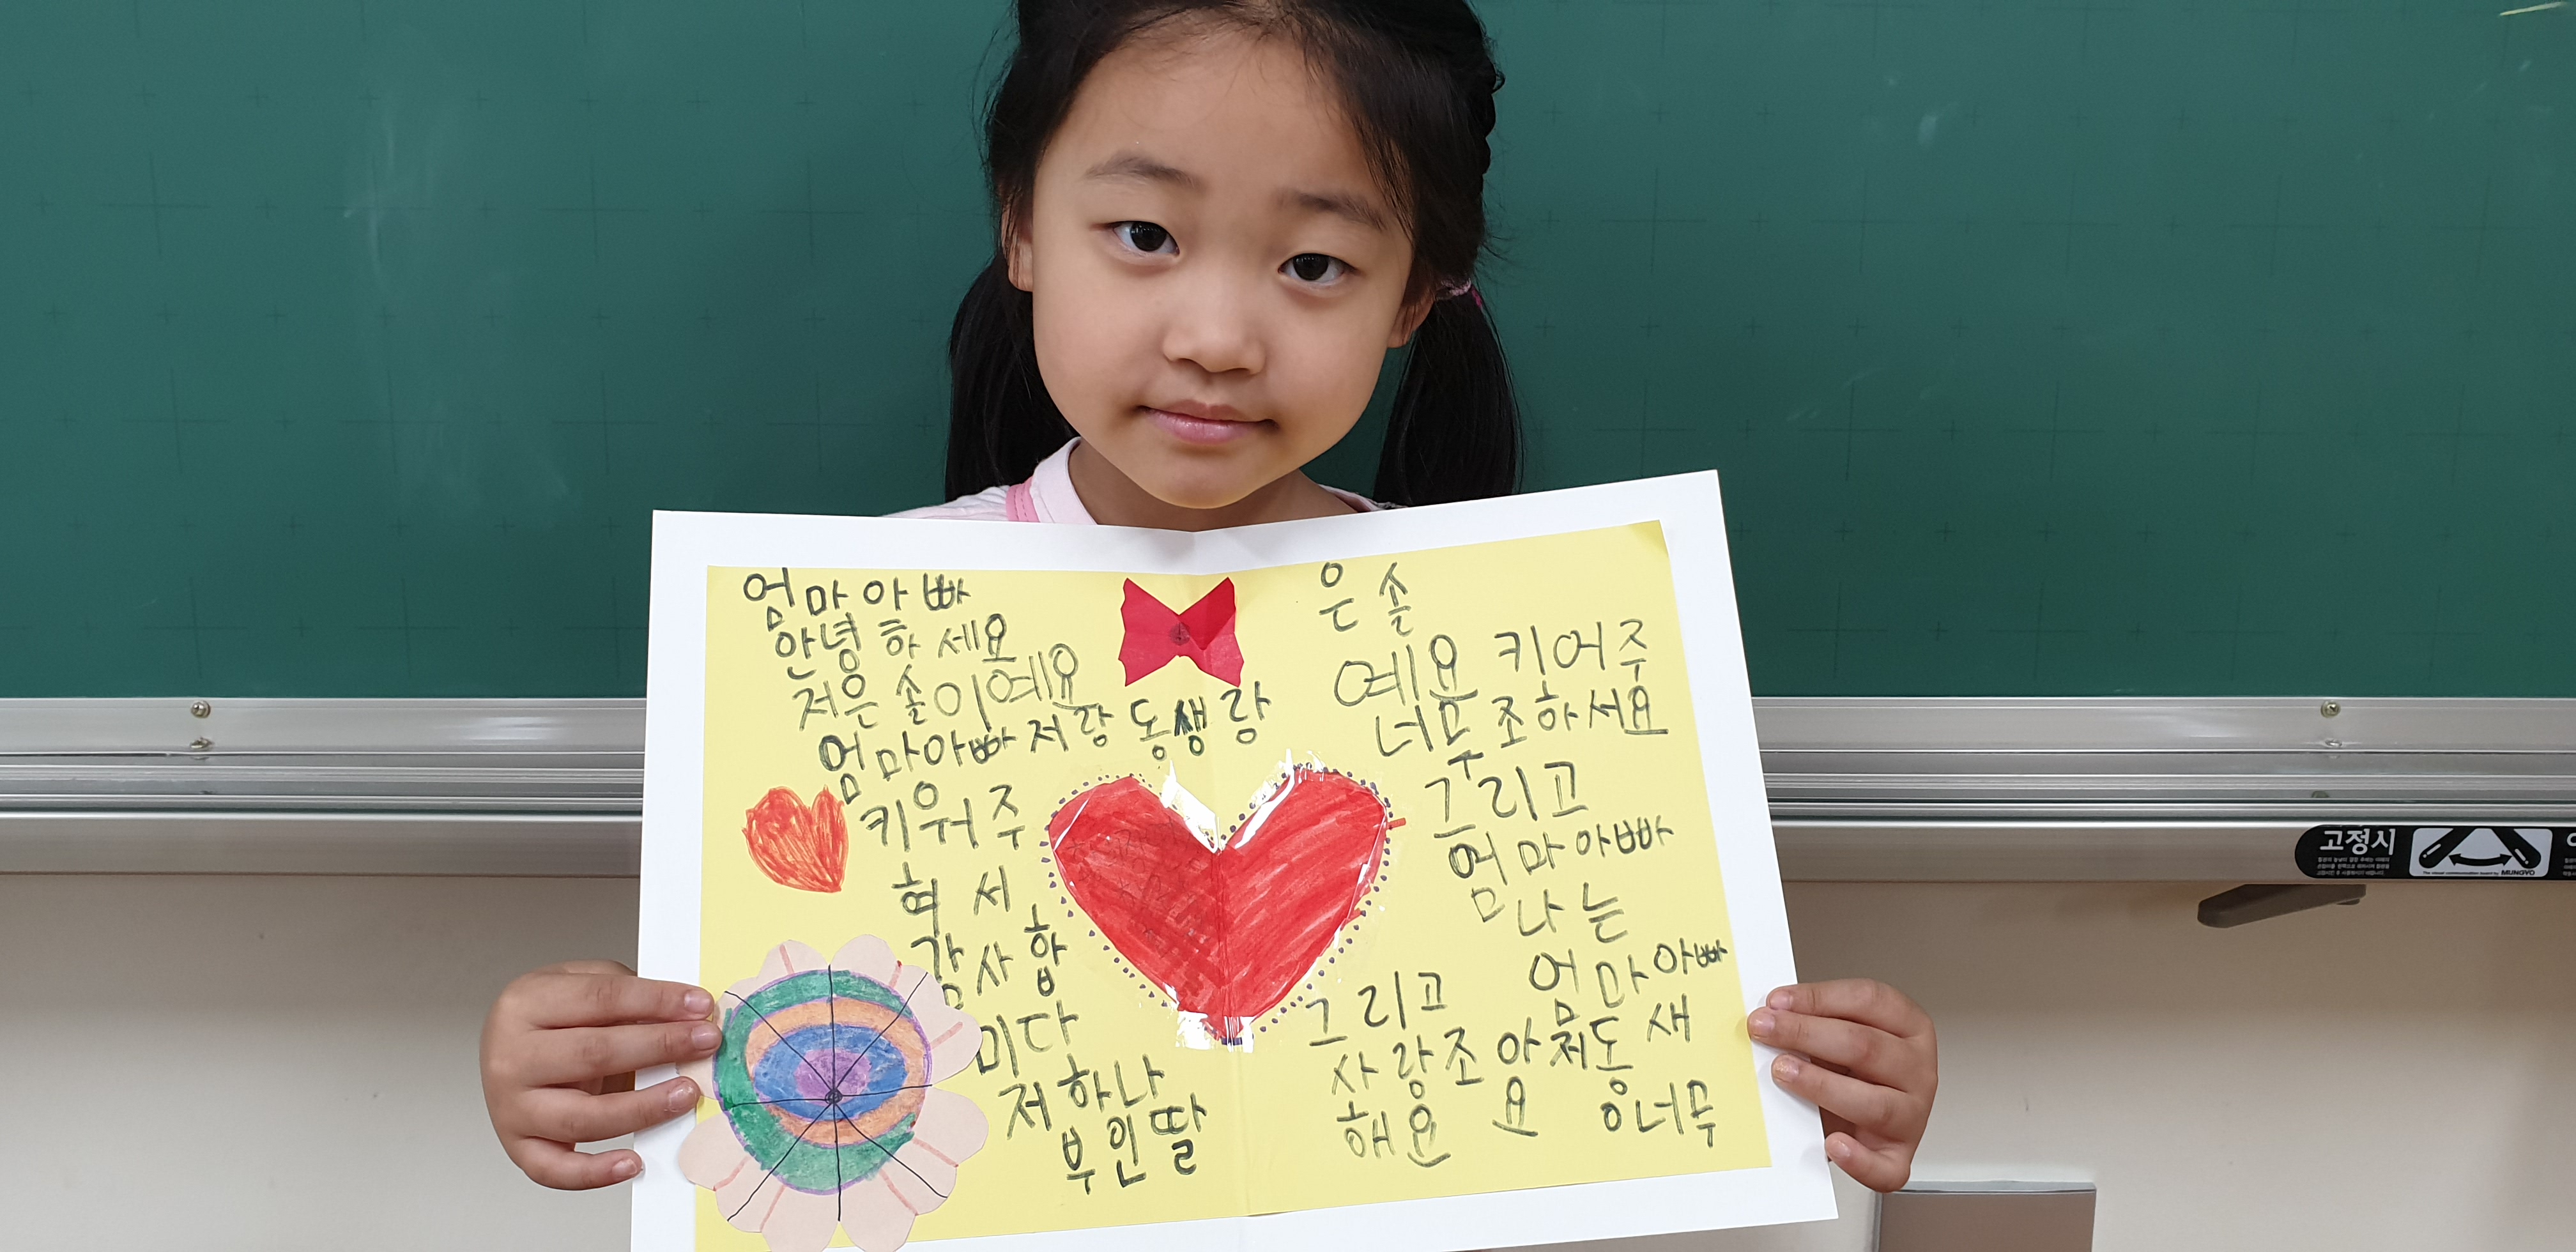 엄마아빠
안녕하세요
저은솔이예요
엄마아빠저랑 동생랑
키워주
혀서
감사합
미다
저하나
부인딸
은솔
예요 키어주
너무조하서요
그리고
엄마아빠
나는
엄마아빠
저동새
이너무
조아
요
그리고
사랑
해요
고정시
MUNGYO